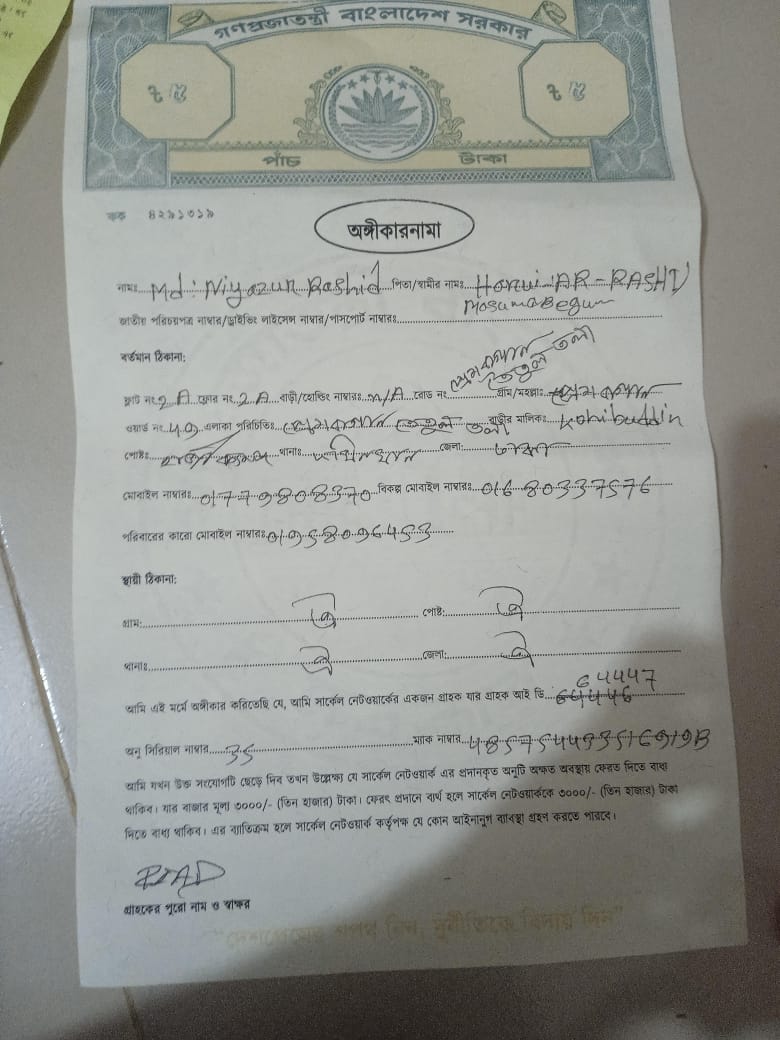 গণপ্রজাতন্ত্রী বাংলাদেশ সরকার
৳ ৫ ৳ ৫
পাঁচ টাকা
কক ৪২৯১৩১৯
অঙ্গীকারনামা
নামঃ Md: Niyazur Rashid পিতা/স্বামীর নামঃ AR-RASHID
Begum
জাতীয় পরিচয়পত্র নাম্বার/ড্রাইভিং লাইসেন্স নাম্বার/পাসপোর্ট নাম্বারঃ
বর্তমান ঠিকানা:
তেতুল তলা
ফ্লাট নং 2 A ফ্লোর নং 2 A বাড়ী/হোল্ডিং নাম্বারঃ N/A রোড নং গ্রাম/মহল্লাঃ
ওয়ার্ড নং 49 এলাকা পরিচিতিঃ তেতুল তলা বাড়ীর মালিকঃ
পোষ্টঃ থানাঃ দক্ষিনখান জেলা: ঢাকা
মোবাইল নাম্বারঃ 01779808370 বিকল্প মোবাইল নাম্বারঃ 01680337576
পরিবারের কারো মোবাইল নাম্বারঃ 01958096453
স্থায়ী ঠিকানা:
গ্রাম: ঐ পোষ্ট: ঐ
থানাঃ ঐ জেলা: ঐ
64447
আমি এই মর্মে অঙ্গীকার করিতেছি যে, আমি সার্কেল নেটওয়ার্কের একজন গ্রাহক যার গ্রাহক আই ডি
অনু সিরিয়াল নাম্বার 35 ম্যাক নাম্বার 485754493516919B
আমি যখন উক্ত সংযোগটি ছেড়ে দিব তখন উল্লেক্ষ্য যে সার্কেল নেটওয়ার্ক এর প্রদানকৃত অনুটি অক্ষত অবস্থায় ফেরত দিতে বাধ্য
থাকিব। যার বাজার মূল্য ৩০০০/- (তিন হাজার) টাকা। ফেরৎ প্রদানে ব্যর্থ হলে সার্কেল নেটওয়ার্ককে ৩০০০/- (তিন হাজার) টাকা
দিতে বাধ্য থাকিব। এর ব্যতিক্রম হলে সার্কেল নেটওয়ার্ক কর্তৃপক্ষ যে কোন আইনানুগ ব্যাবস্থা গ্রহন করতে পারবে।
RIAD
গ্রাহকের পুরো নাম ও স্বাক্ষর
"দেশপ্রেমের শপথ নিন, দুর্নীতিকে বিদায় দিন"